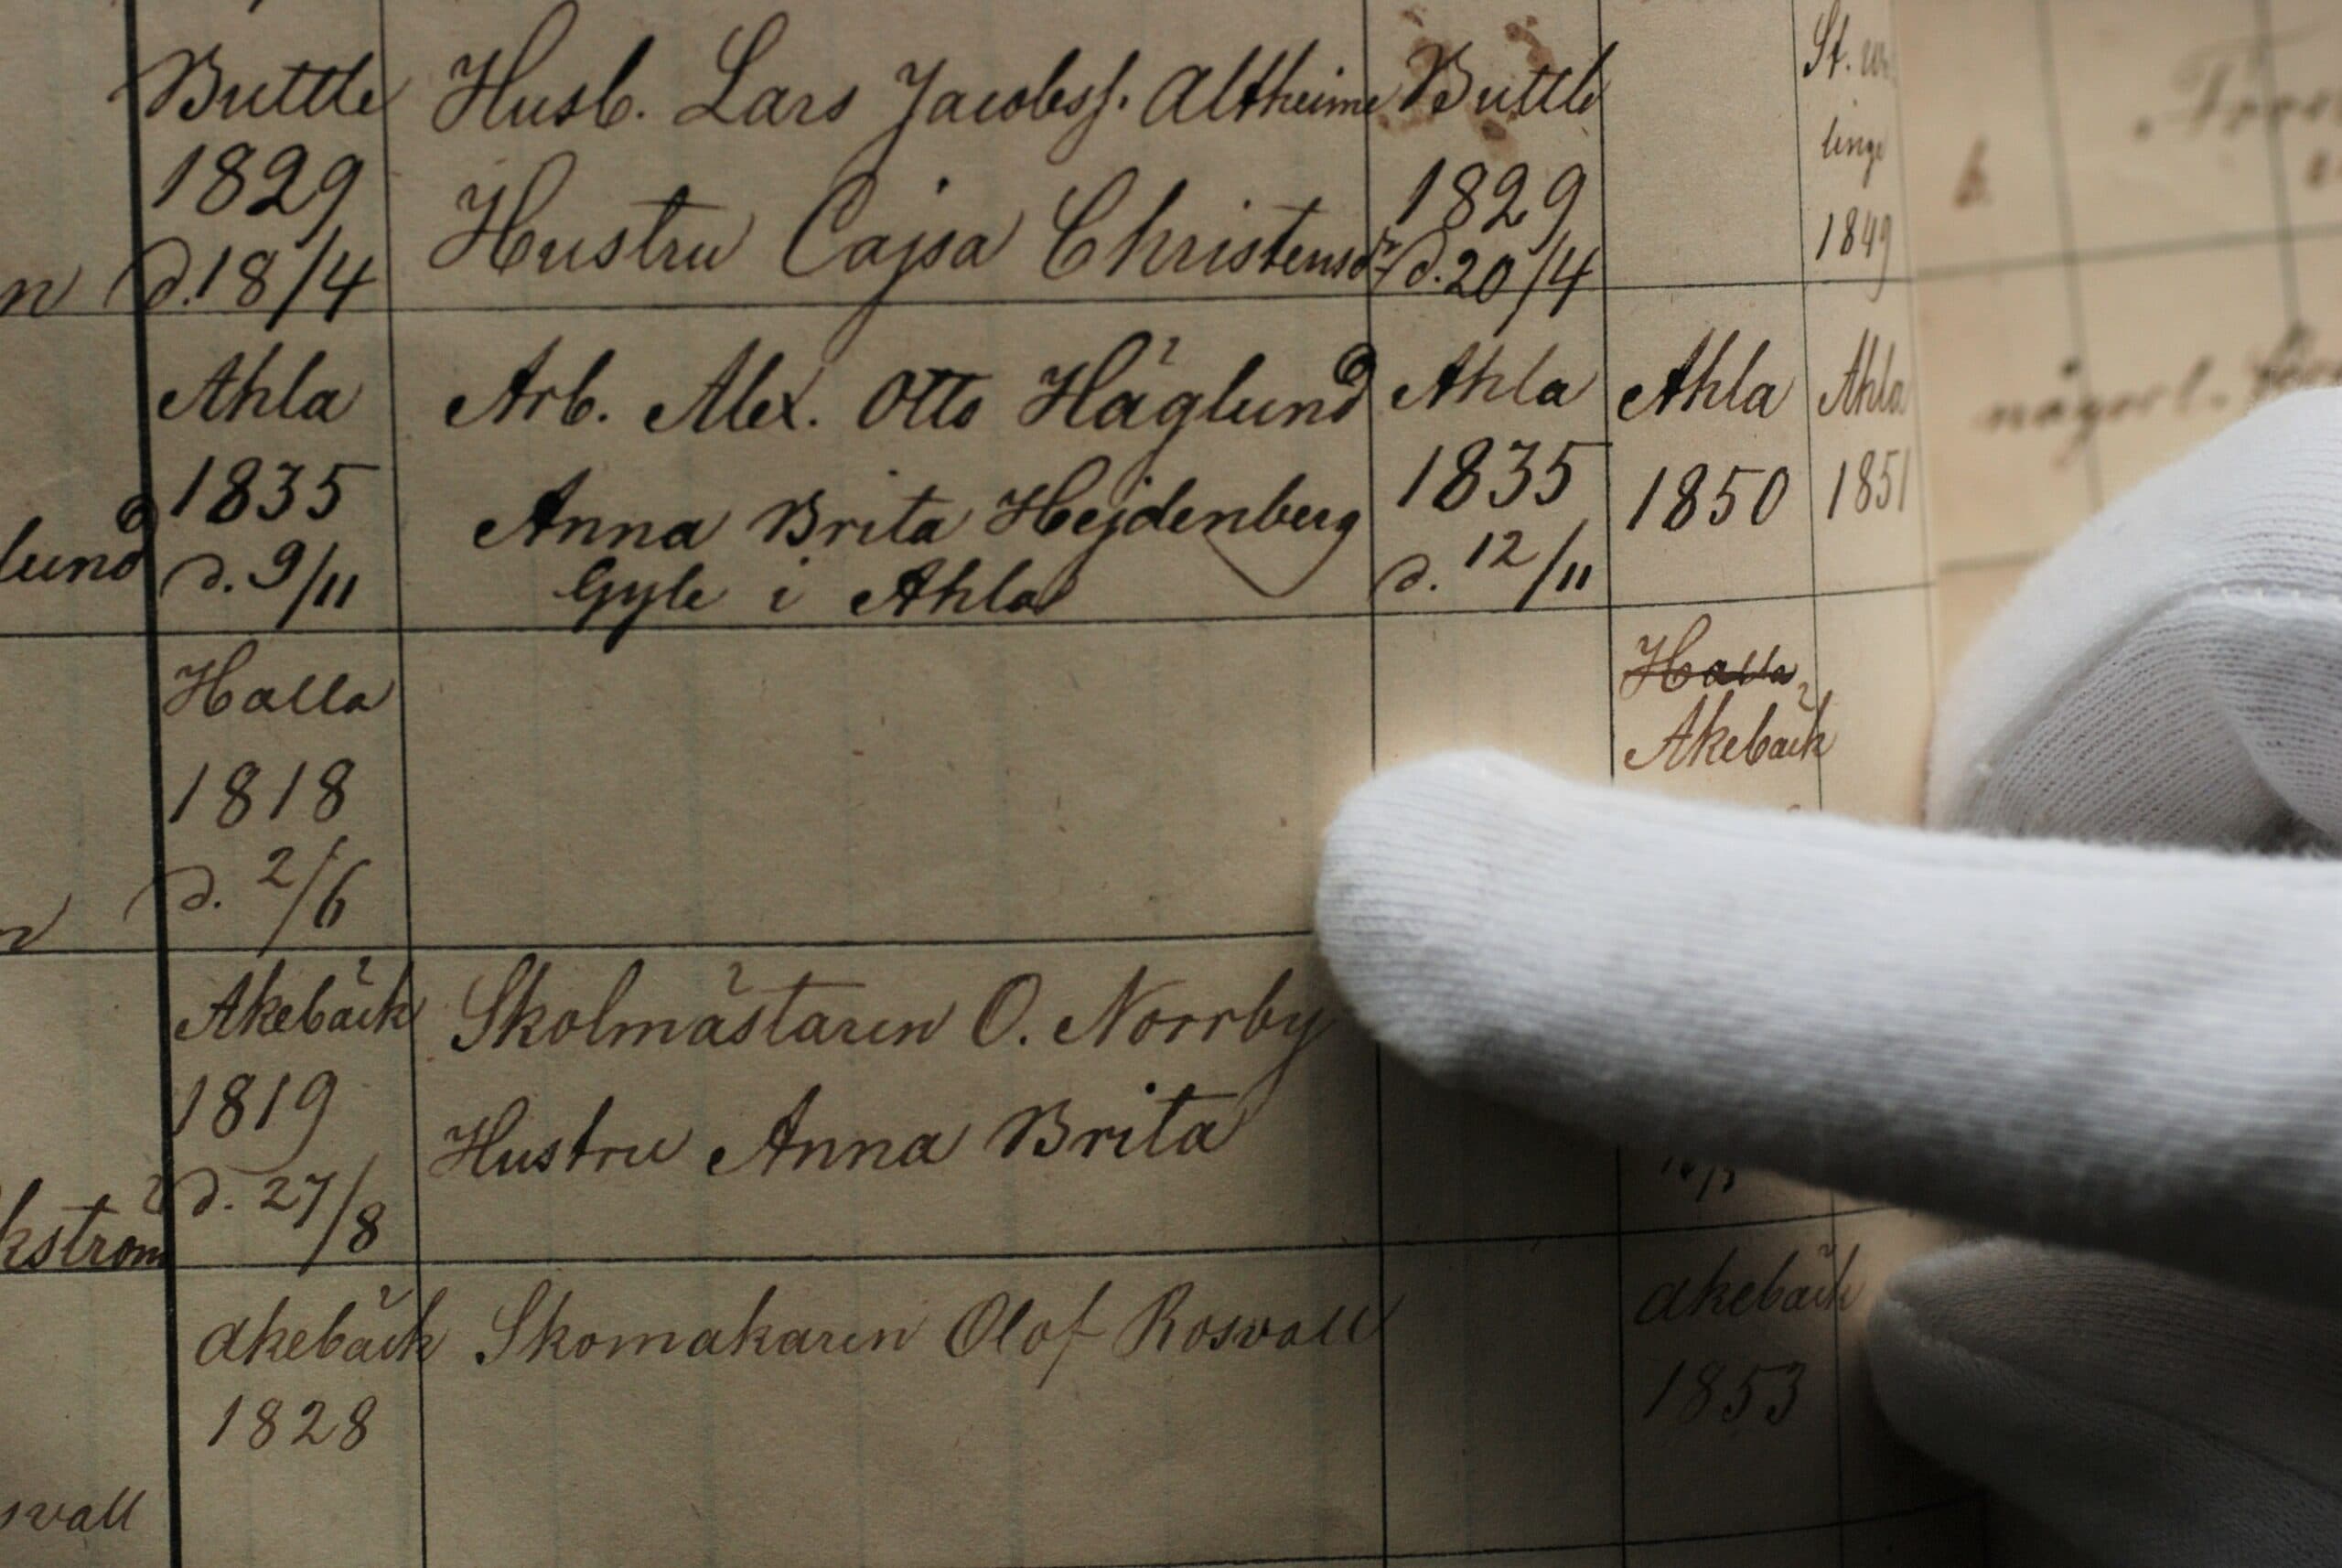 Buttle Husb. Lars Jacobss. Altheime Buttle St.
1829 linge
Hustru Cajsa Christensd:r 1829 1849
n d. 18/4 d. 20/4
Ahla Arb. Alex. Otto Häglund Ahla Ahla Ahla
1835 Anna Brita Hejdenberg 1835 1850 1851
lund d. 9/11 Gyle i Ahla d. 12/11
Halla Halla
Akebäck
1818
d. 2/6
Akebäck Skolmästaren O. Norrby
1819 Hustru Anna Brita
d. 27/8
kström
Akebäck Skomakaren Olof Rosvall Akebäck
1828 1853
svall